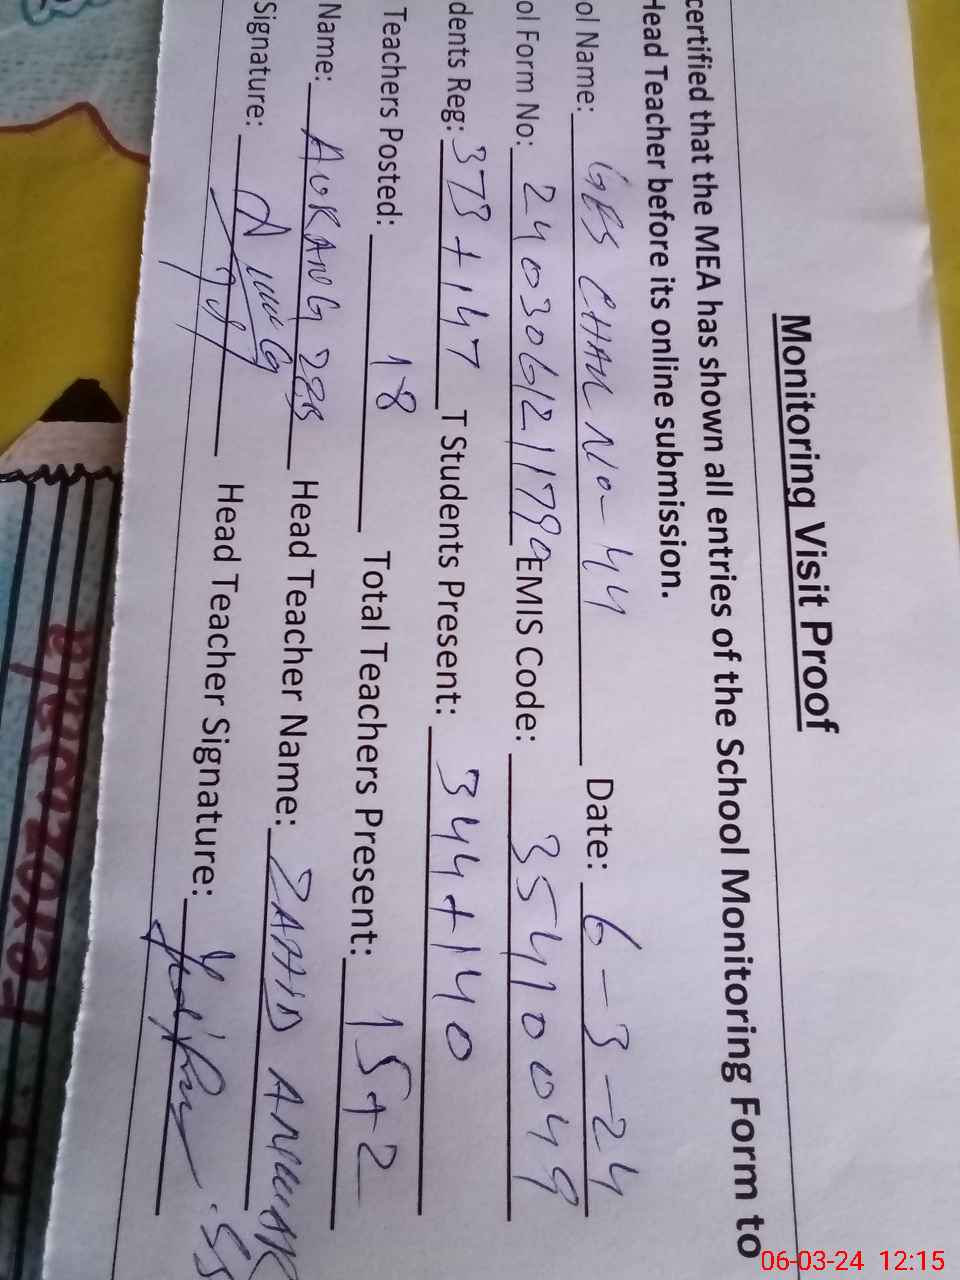 Monitoring Visit Proof
certified that the MEA has shown all entries of the School Monitoring Form to
Head Teacher before its online submission.
ol Name: GES CHAK NO- 44 Date: 6-3-24
ol Form No: 2403061211799 EMIS Code: 35410049
dents Reg: 373+147 T Students Present: 344+140
Teachers Posted: 18 Total Teachers Present: 15+2
Name: AURANG ZEB Head Teacher Name: ZAHID
Signature: Head Teacher Signature:
06-03-24 12:15